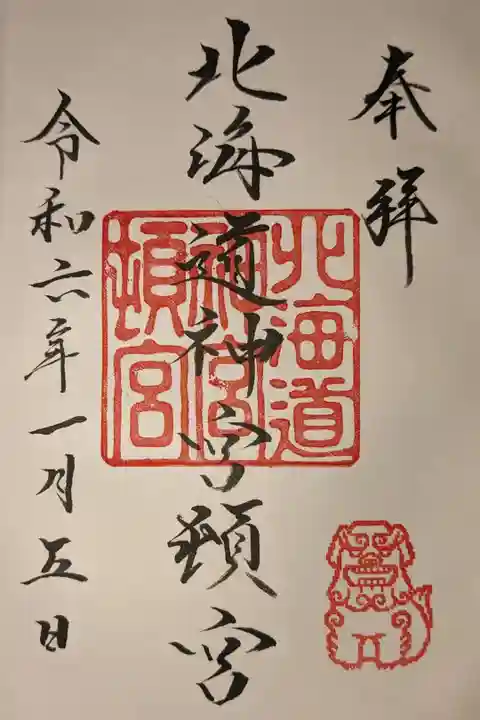 奉拝
北海道神宮頓宮
北海道
神宮
頓宮
令和六年一月五日